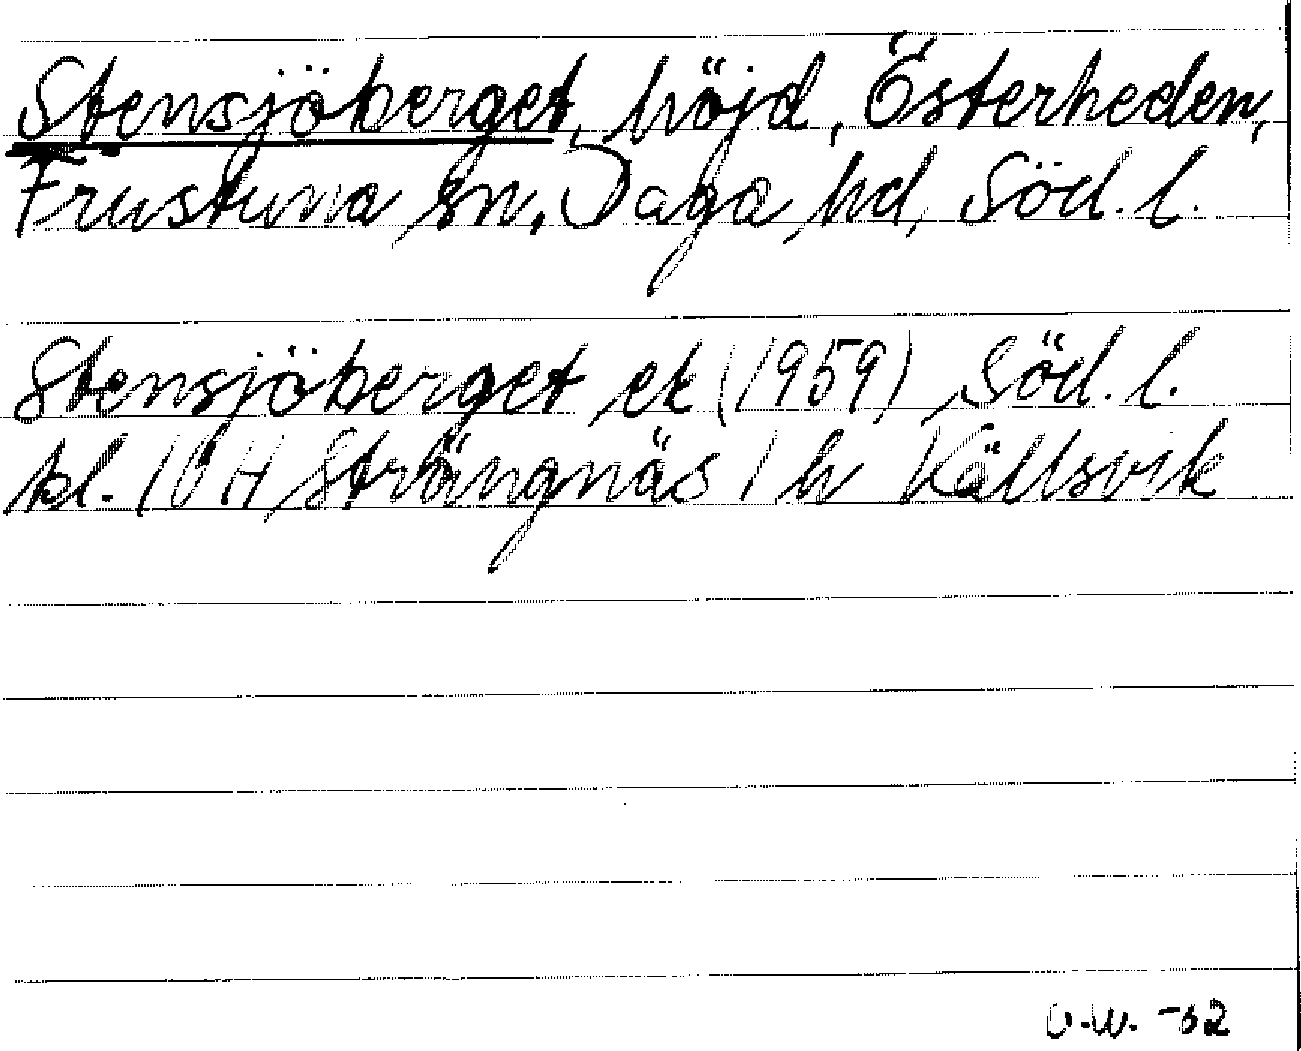 Stensjöberget, höjd, Österheden,
Frustuna sn, Daga hd, Söd. l.
Stensjöberget ek (1959) Söd. l.
bl. 10H Strängnäs 1 h Källsvik
O.W. -62